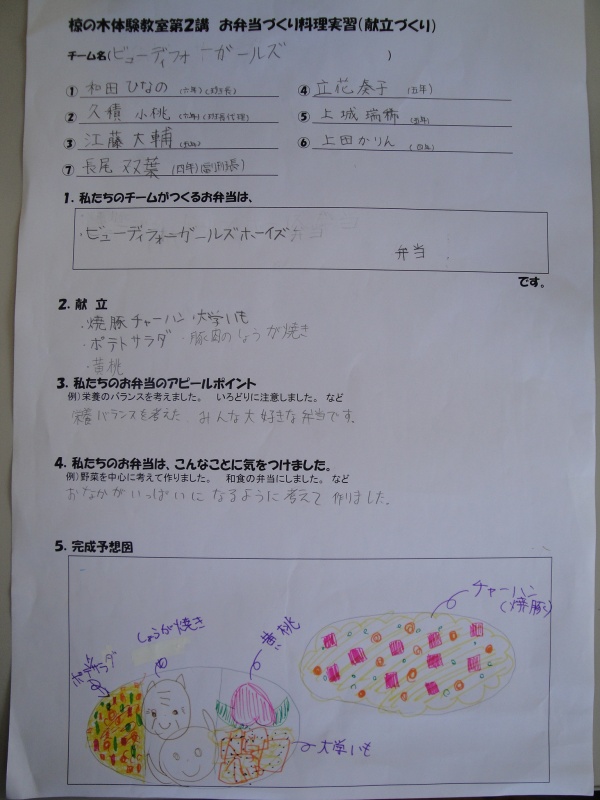 椋の木体験教室第2講 お弁当づくり料理実習(献立づくり)
チーム名(ビューディフォーガールズ )
① 和田 ひなの (六年)(班長)
④ 立花 奏子 (五年)
② 久積 小桃 (六年)(班長代理)
⑤ 上城 瑞稀 (五年)
③ 江藤 大輔
⑥ 上田 かりん (四年)
⑦ 長尾 双葉 (四年)
1. 私たちのチームがつくるお弁当は、
・ビューディフォーガールズボーイズ
弁当
です。
2. 献 立
・焼豚チャーハン ・大学いも
・ポテトサラダ ・豚肉のしょうが焼き
・黄桃
3. 私たちのお弁当のアピールポイント
例)栄養のバランスを考えました。 いろどりに注意しました。 など
栄養バランスを考えた みんな大好きな弁当です。
4. 私たちのお弁当は、こんなことに気をつけました。
例)野菜を中心に考えて作りました。 和食の弁当にしました。 など
おなかがいっぱいになるように考えて作りました。
5. 完成予想図
チャーハン
(焼豚)
しょうが焼き
黄桃
大学いも